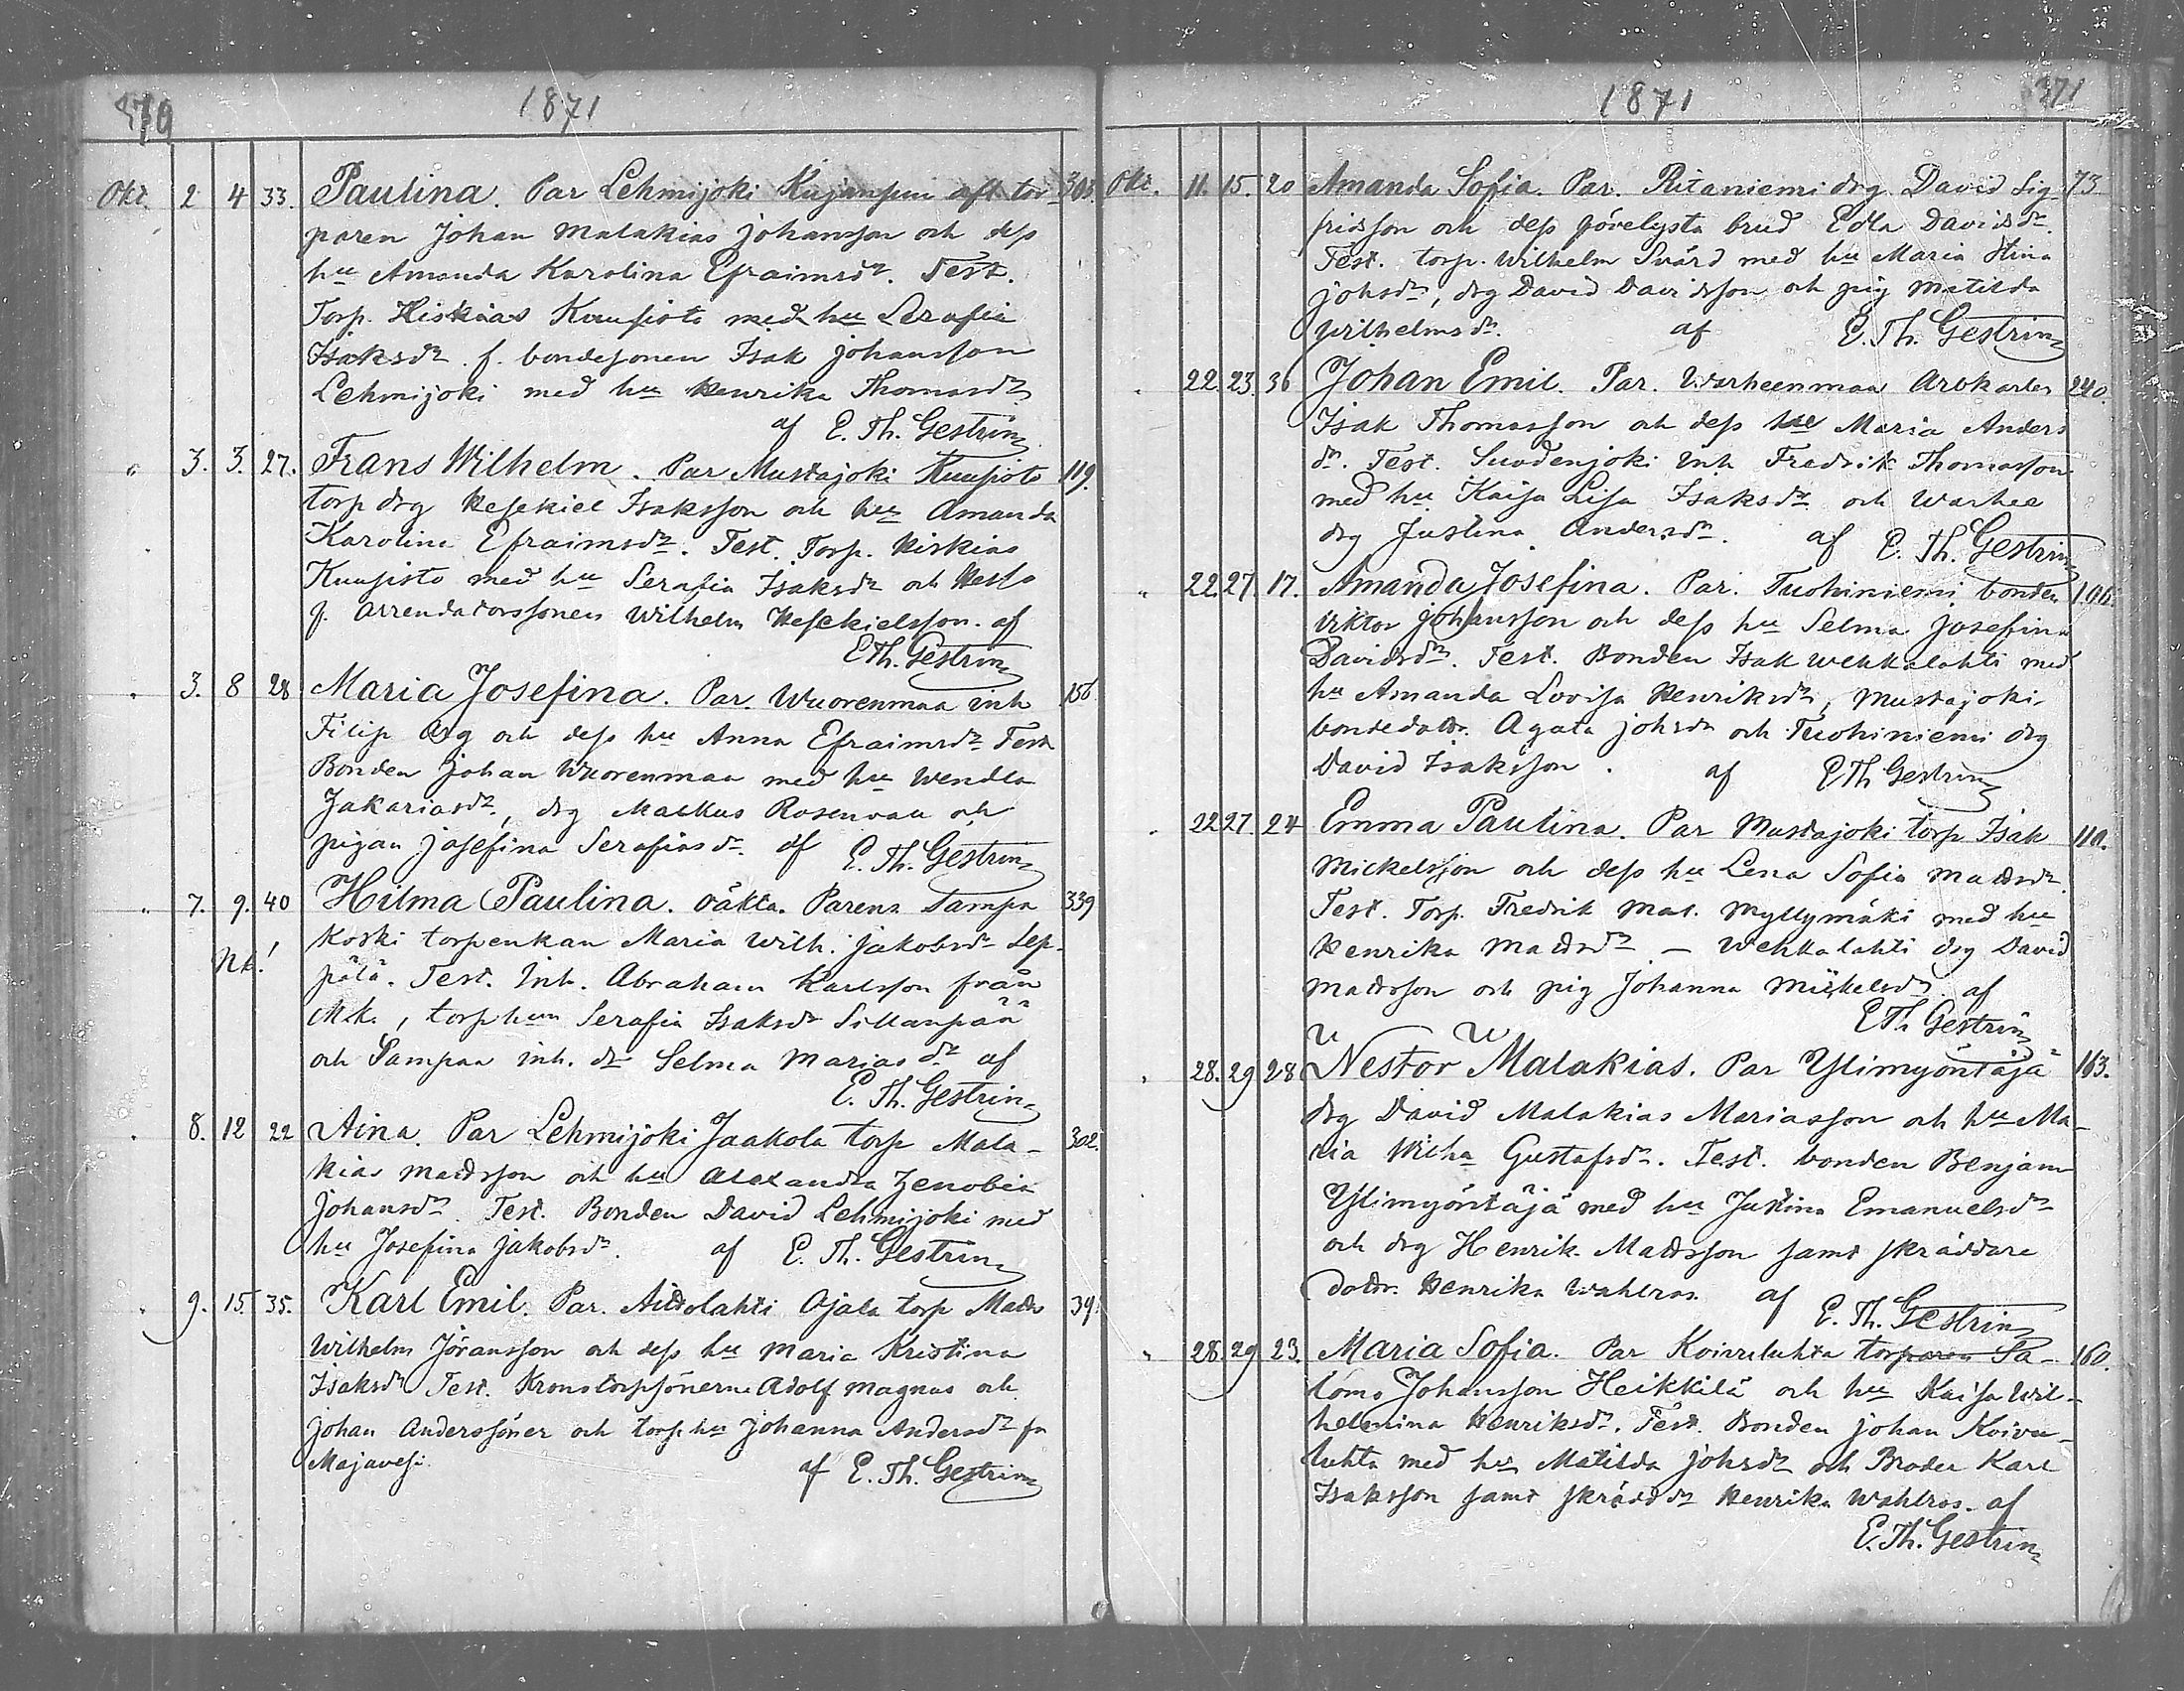 370 1871
Okt. 2 4 33. Paulina. Par Lehmijoki Kujanpuu aft tor- 303.
paren Johan Malakias Johansson och dess
hu Amanda Karolina Efraimsdr. Test.
Torp. Hiskias Kuusisto med hu Serafia
Isaksdr f. bondesonen Isak Johansson
Lehmijoki med hu Henrika Thomasdr
af E. Th. Gestrin
" 3. 3. 27. Frans Wilhelm. Par Mustajoki Kuusisto 119.
torp drg Hesekiel Isaksson och hu Amanda
Karolina Efraimsdr. Test. Torp. Hiskias
Kuusisto med hu Serafia Isaksdr och
f. arrendatorssonen Wilhelm Hesekielsson. af
E Th. Gestrin
" 3. 8 28 Maria Josefina. Par. Wuorenmaa inh 156.
Filip drg och dess hu Anna Efraimsdr Test
Bonden Johan Wuorenmaa med hu Wendla
Zakariasdr, drg Markus Rosenvall och
pigan Josefina Serafiasdr. af E. Th. Gestrin
" 7. 9. 40 Hilma Paulina. oäkta. Parens Sampa 339
koski torpenkan Maria Wilh. Jakobsdr Sep-
Nk! pälä. Test. Inh. Abraham Karlsson från
Mk., torphun Serafia Isaksdr Sillanpää
och Sampaa inh. dr Selma Mariasdr af
E. Th. Gestrin
" 8. 12 22 Aina. Par Lehmijoki Jaakola torp Mala- 302.
kias Mattsson och hu Alexandra Zenobia
Johansdr. Test. Bonden David Lehmijoki med
hu Josefina Jakobsdr. af E. Th. Gestrin
" 9. 15. 35. Karl Emil. Par. Ojala torp Matts 39.
Wilhelm Jöransson och dess hu Maria Kristina
Isaksdr Test. Kronotorpsönerne Adolf Magnus och
Johan Anderssöner och torp. hu Johanna Andersdr fr
Majavesi. af E. Th. Gestrin
1871 371
Okt. 11. 15. 20 Amanda Sofia. Par. Ritaniemi drg David Sig- 73.
fridsson och dess trolofvade brud Edla Davidsdr.
Test. torp. Wilhelm Svärd med hu Maria Stina
Johsdr, drg David Davidsson och pig Matilda
Wilhelmsdr. af E. Th. Gestrin
" 22. 23. 36 Johan Emil. Par. Warheenmaa Arbkarlen 240.
Isak Thomasson och dess hu Maria Anders
dr. Test. Suodenjoki inh Fredrik Thomasson
med hu Kaisa Lisa Isaksdr och Warhee
drg Justina Andersdr. af E. Th. Gestrin
" 22. 27. 17. Amanda Josefina. Par. Tuohiniemi bonden 106.
Viktor Johansson och dess hu Selma Josefina
Davidsdr. Test. Bonden Isak Wehkalahti med
hu Amanda Lovisa Henriksdr, Mustajoki
bondedottr. Agata Johsdr och Tuohiniemi drg
David Isaksson. af E Th Gestrin
" 22 27 24 Emma Paulina. Par Mustajoki torp Isak 110.
Mickelsson och dess hu Lena Sofia Mattsdr.
Test. Torp. Fredrik Mat. Myllymäki med hu
Henrika Mattsdr – Wehkalahti drg David
Mattsson och pig Johanna Mickelsdr. af
E Th. Gestrin
" 28. 29 28 Nestor Malakias. Par Ylimyöntäjä 163.
drg David Malakias Mariasson och hu Ma-
ria Wilha Gustafsdr. Test. bonden Benjam
Ylimyöntäjä med hu Justina Emanuelsdr
och drg Henrik Mattsson samt skräddare
dottr. Henrika Wahlros. af E. Th. Gestrin
" 28. 29 23. Maria Sofia. Par Koivuluhta torparen Sa- 160.
lomo Johansson Heikkilä och hu Kaisa Wil-
helmina Henriksdr. Test. Bonden Johan Koivu-
luhta med hu Matilda Johsdr och Broder Karl
Isaksson samt skrädddr Henrika Wahlros. af
E. Th. Gestrin